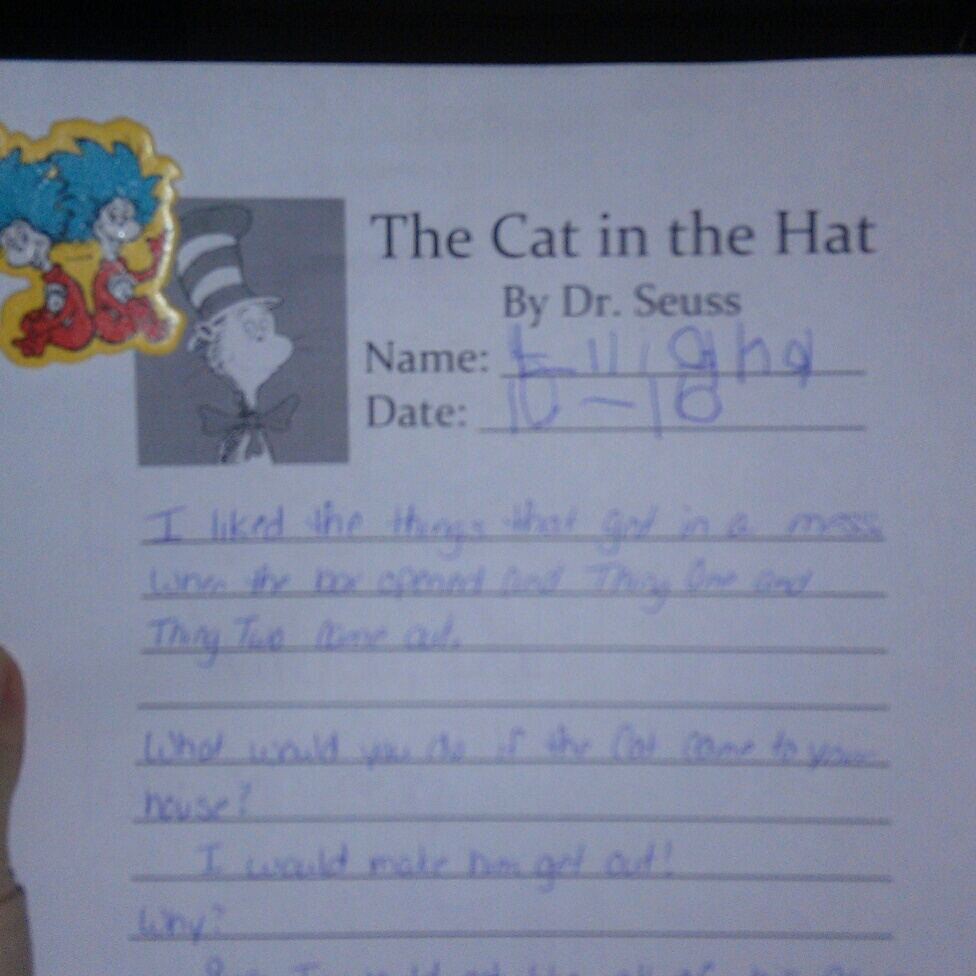 The Cat in the Hat
By Dr. Seuss
Name: Elliana
Date: 10-18
I liked the things that got in a mess
when the box opened and Thing One and
Thing Two came out.
What would you do if the Cat came to your
house?
I would make him get out!
Why?